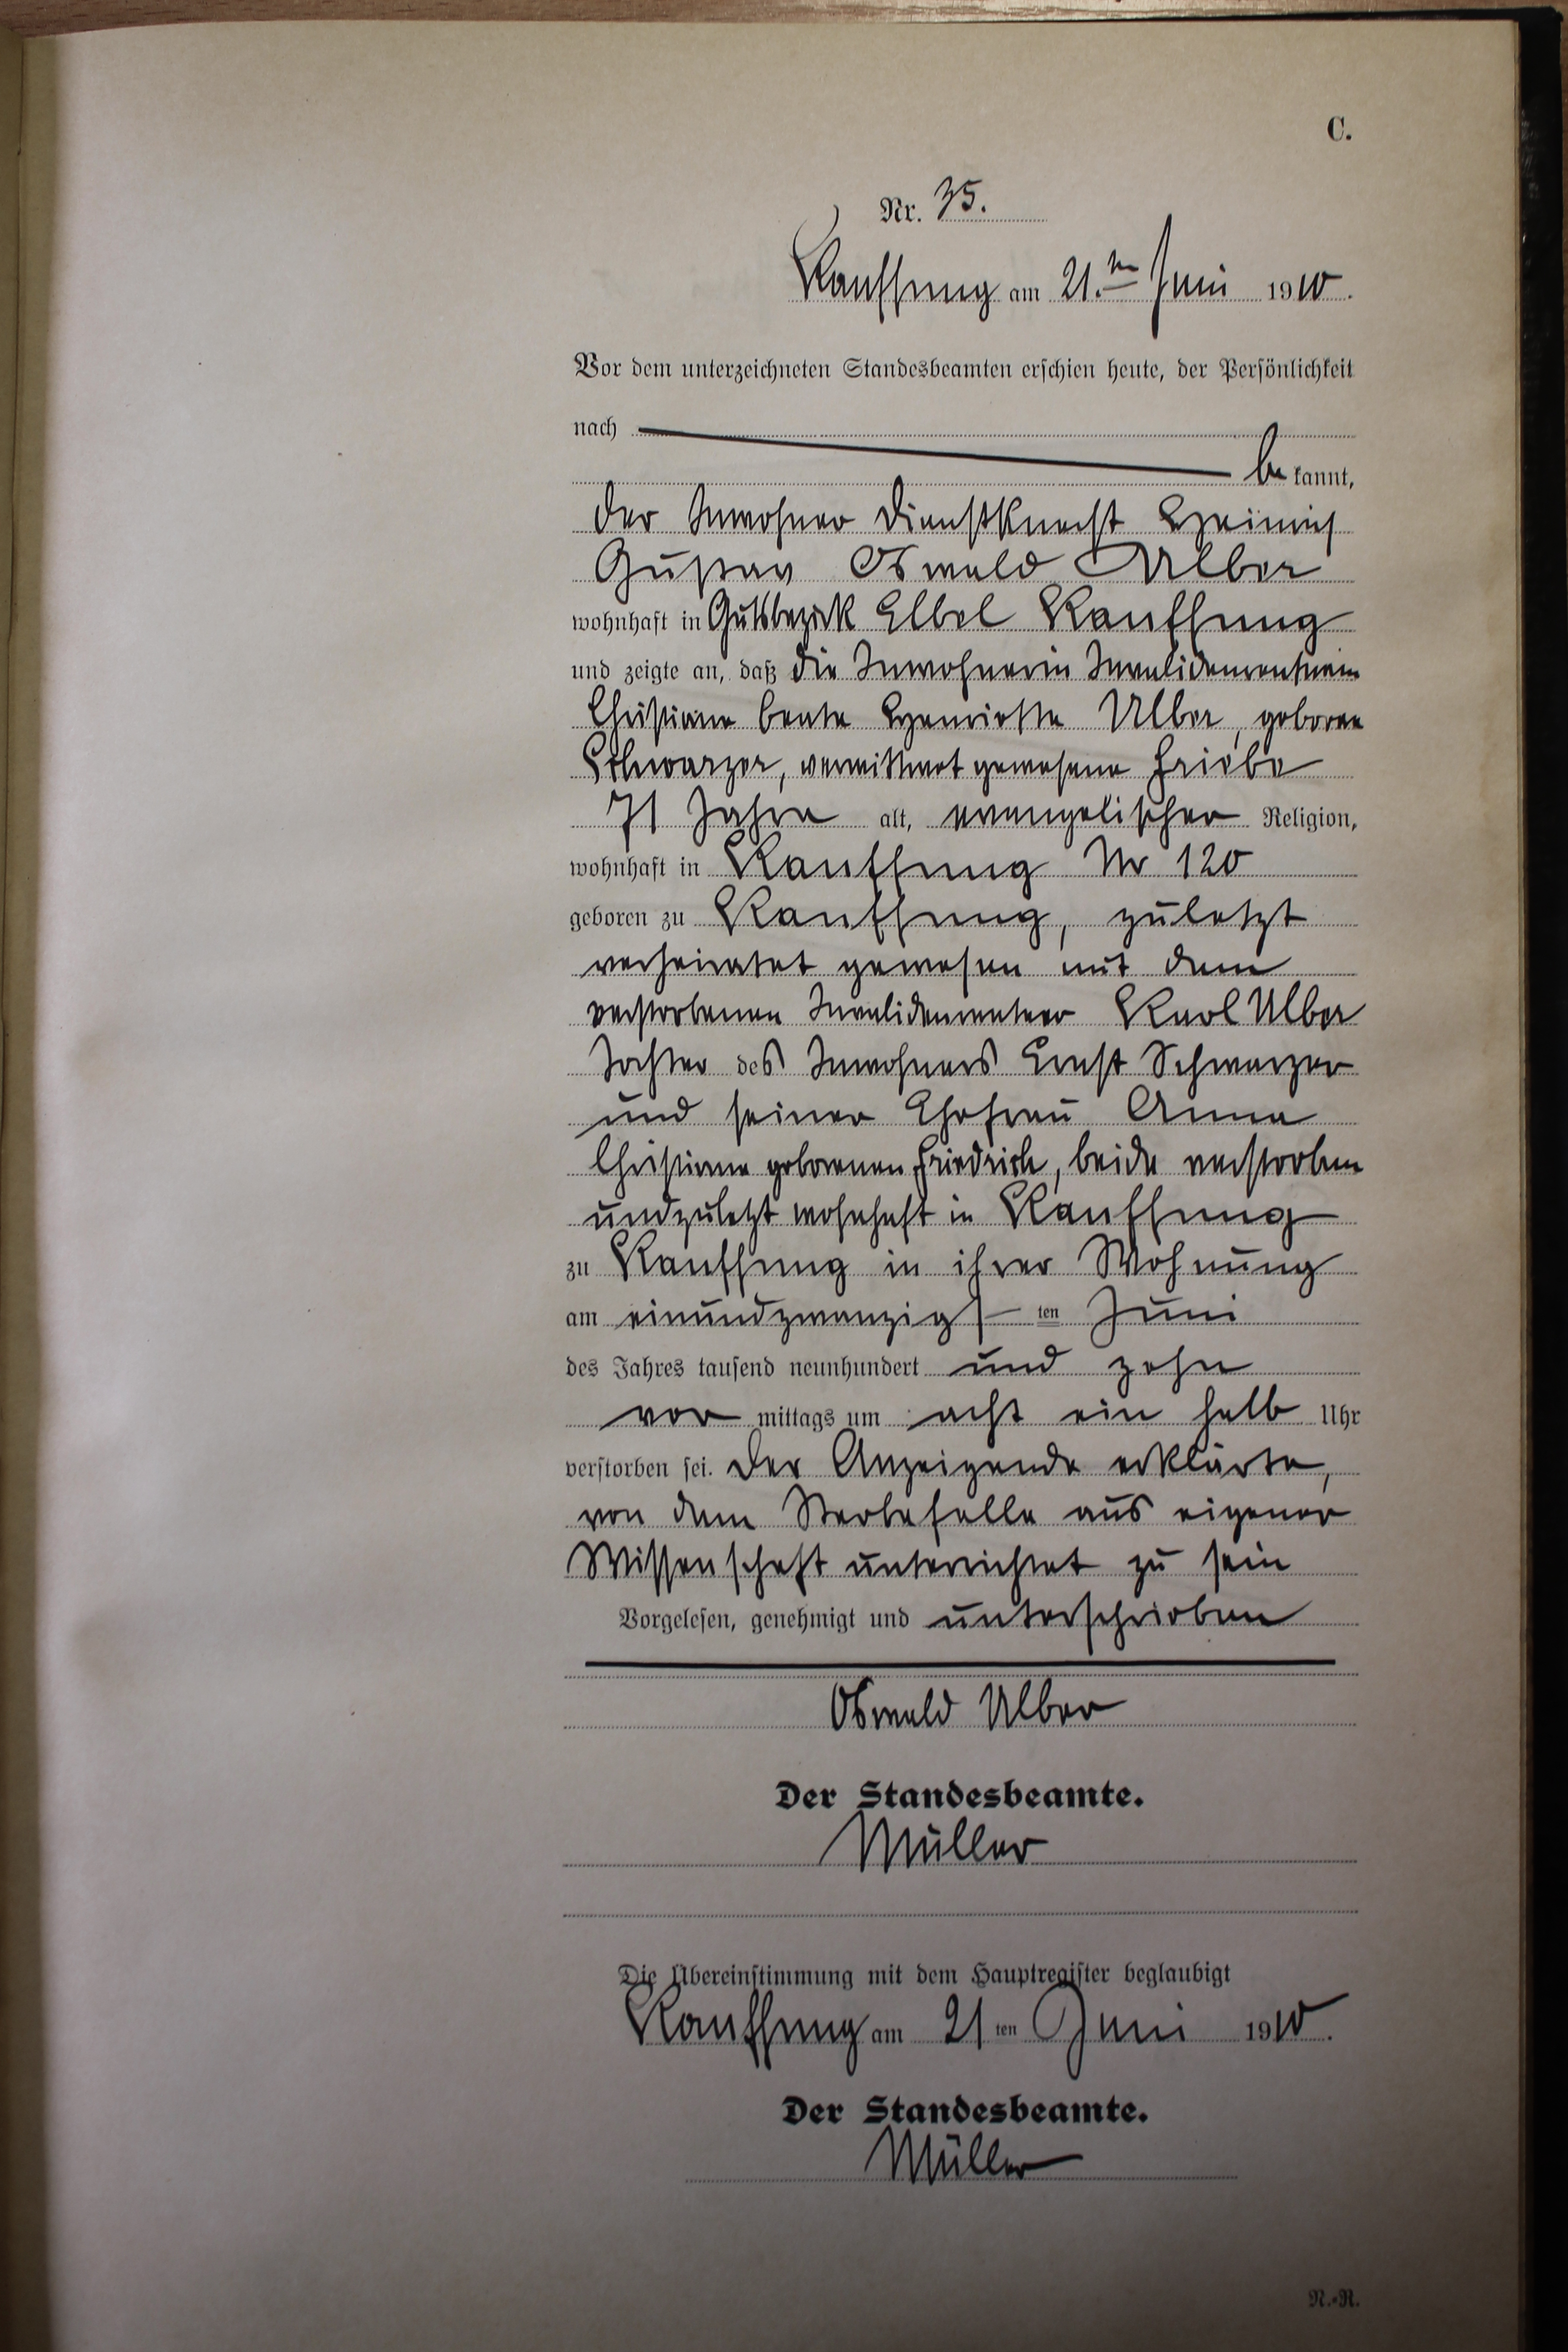 C.
Nr. 35.
Kauffung am 21.ten Juni 1910.
Vor dem unterzeichneten Standesbeamten erschien heute, der Persönlichkeit
nach
be kannt,
der Inwohner Dienstknecht Heinrich
Gustav Oswald Ulber
wohnhaft in Gutsbezirk Elbel Kauffung
und zeigte an, daß die Inwohnerin Invalidenrentnerin
Christiane Beate Henriette Ulber, geborene
Schwarzer, verwittwet gewesene Friebe
71 Jahre alt, evangelischer Religion,
wohnhaft in Kauffung Nr 120
geboren zu Kauffung, zuletzt
verheiratet gewesen mit dem
verstorbenen Invalidenrentner Karl Ulber
Tochter des Inwohners Ernst Schwarzer
und seiner Ehefrau Anna
Christiane geborenen Friedrich, beide verstorben
und zuletzt wohnhaft in Kauffung
zu Kauffung in ihrer Wohnung
am einundzwanzigsten Juni
des Jahres tausend neunhundert und zehn
vor mittags um acht ein halb Uhr
verstorben sei. Der Anzeigende erklärte,
von dem Sterbefalle aus eigener
Wissenschaft unterrichtet zu sein
Vorgelesen, genehmigt und unterschrieben
Oswald Ulber
Der Standesbeamte.
Müller
Die Übereinstimmung mit dem Hauptregister beglaubigt
Kauffung am 21 ten Juni 1910.
Der Standesbeamte.
Müller
N.-R.